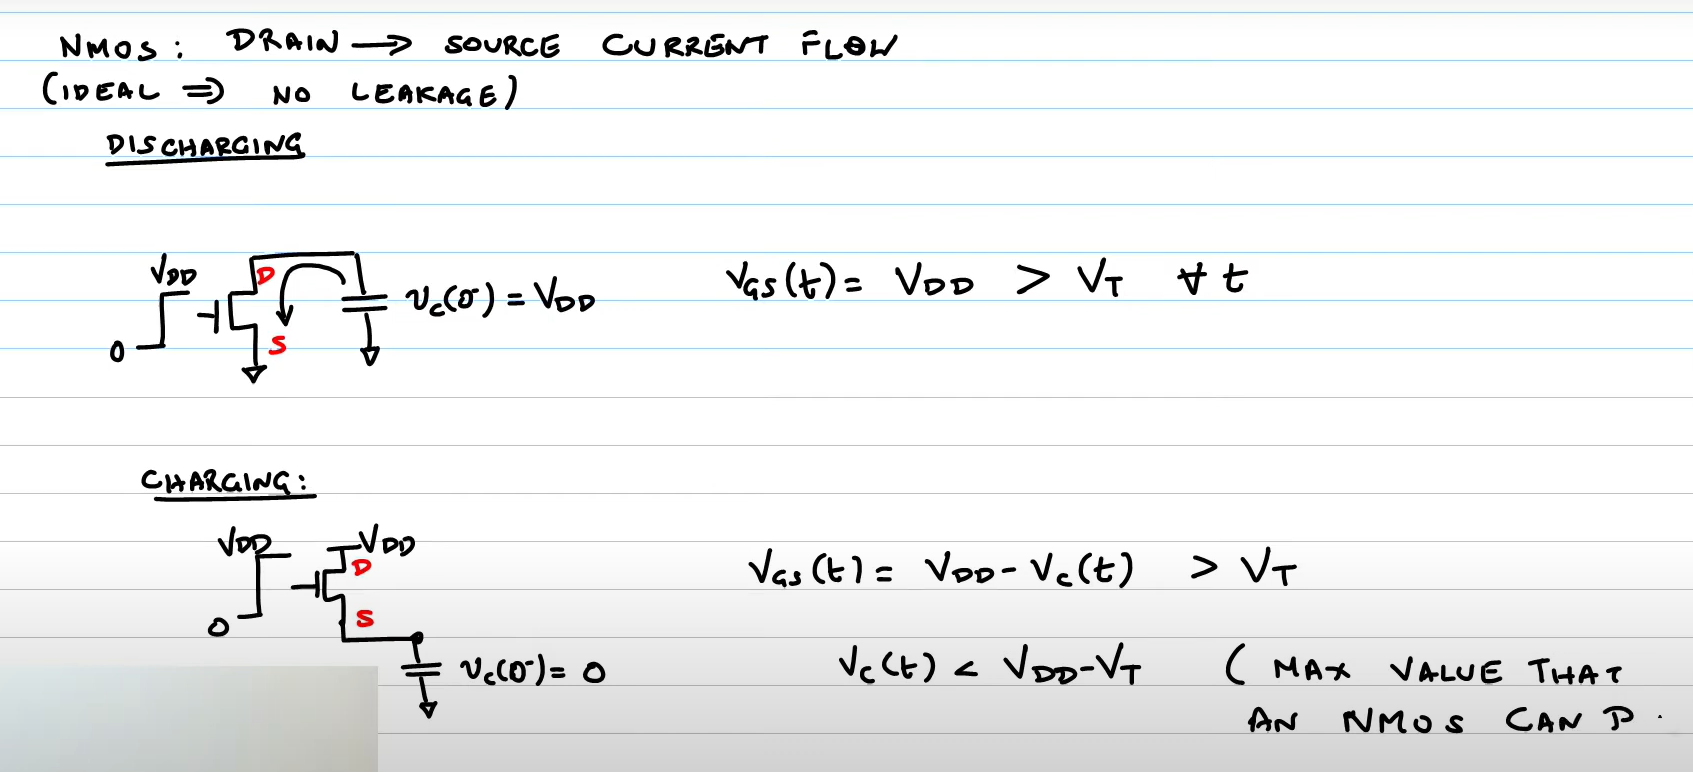 NMOS: DRAIN → SOURCE CURRENT FLOW
(IDEAL ⇒ NO LEAKAGE)
DISCHARGING
VDD
0
D
S
vc(0⁻) = VDD
VGS(t) = VDD > VT ∀ t
CHARGING:
VDD
0
VDD
D
S
vc(0⁻) = 0
VGS(t) = VDD - VC(t) > VT
VC(t) < VDD-VT (MAX VALUE THAT
AN NMOS CAN P